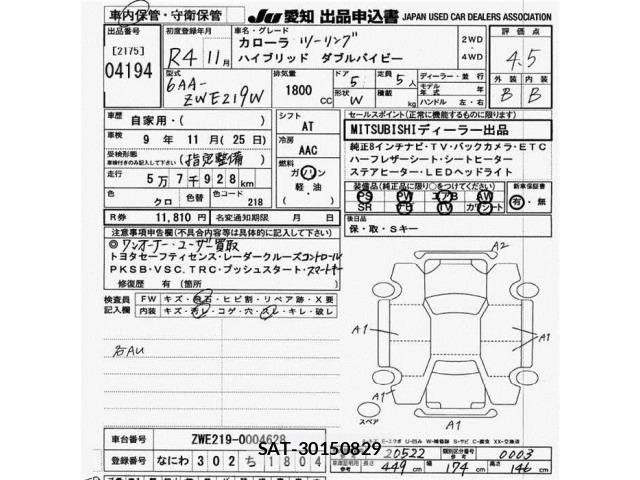 車内保管・守衛保管 Ju 愛知 出品申込書 JAPAN USED CAR DEALERS ASSOCIATION
出品番号 初度登録年月 車名・グレード 2WD ・ 4WD 評価点
[2175] R4 11月 カローラ ツーリング 4.5
04194 ハイブリッド ダブルバイビー
型式 6AA-ZWE219W 排気量 1800 CC ドア 5 定員 5人 ディーラー・並行 外装 内装
形状 W 積載 kg モデル年式 年 ハンドル 左・右 B B
車歴 自家用・( ) シフト AT セールスポイント(正常に機能するものに限ります)
車検 9年 11月(25日) 冷房 AAC MITSUBISHIディーラー出品
受検形態 (指定整備) 燃料 ガソリン 軽・油
純正8インチナビ・TV・バックカメラ・ETC
ハーフレザーシート・シートヒーター
ステアヒーター・LEDヘッドライト
走行 5万7千928km
装備品(純正品に限り○をつけてください) 新車保証書
色 クロ 色 色コード 218 PS PW エアB AW 有・無
SR TV カワシート
R券 11,810円 名変通知期限 月 日 後日品
保・取・Sキー
注意事項申告欄(不具合内容等は具体的に記入)
◎ワンオーナー・ユーザー買取
トヨタセーフティセンス・レーダークルーズコントロール
PKSB・VSC.TRC・プッシュスタート・スマートキー
修復歴 有 (箇所 )
検査員記入欄 FW キズ・飛石・ヒビ割・リペア跡・X要
内装 キズ・汚レ・コゲ・穴・スレ・キレ・破レ
右AU
A2
A1 A1
A1
A1
スペア
車台番号 ZWE219-0004628
SAT-30150829
登録番号 なにわ 302 ち 1804
20522 類別区分番号 0003
車庫証明用参考 長さ 449cm 幅 174cm 高さ 146cm